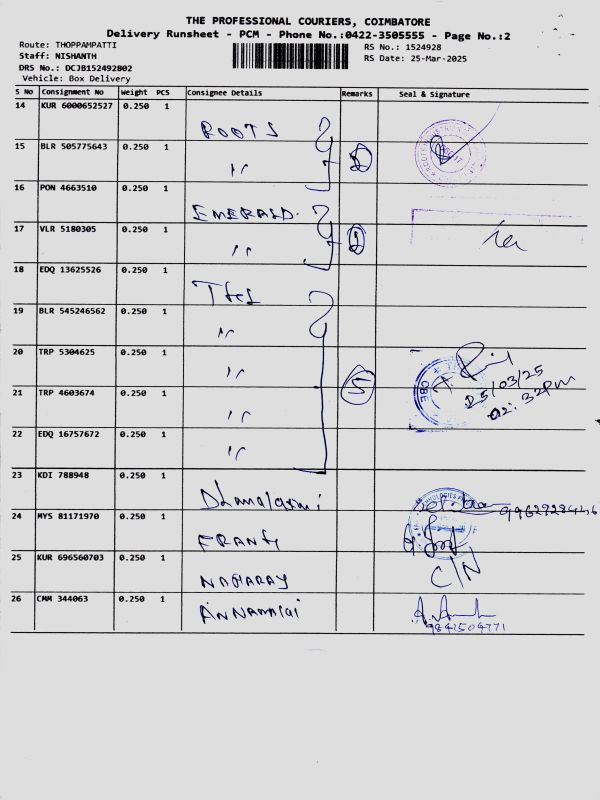 THE PROFESSIONAL COURIERS, COIMBATORE
Delivery Runsheet - PCM - Phone No.:0422-3505555 - Page No.:2
Route: THOPPAMPATTI
RS No.: 1524928
Staff: NISHANTH
RS Date: 25-Mar-2025
DRS No.: DCJB152492802
Vehicle: Box Delivery
S No Consignment No Weight PCS Consignee Details Remarks Seal & Signature
14 KUR 6000652527 0.250 1 ROOTS
15 BLR 505775643 0.250 1 〃 2
16 PON 4663510 0.250 1 EMERALD.
17 VLR 5180305 0.250 1 〃
18 EDQ 13625526 0.250 1
19 BLR 545246562 0.250 1 〃
20 TRP 5304625 0.250 1 〃
21 TRP 4603674 0.250 1 〃 5 25/03/25
02:32PM
22 EDQ 16757672 0.250 1 〃
23 KDI 788948 0.250 1 Dhanalaxmi
24 MYS 81171970 0.250 1
25 KUR 696560703 0.250 1 NAGARAJ C/N
26 CMM 344063 0.250 1 ANNAMALAI
9841504771